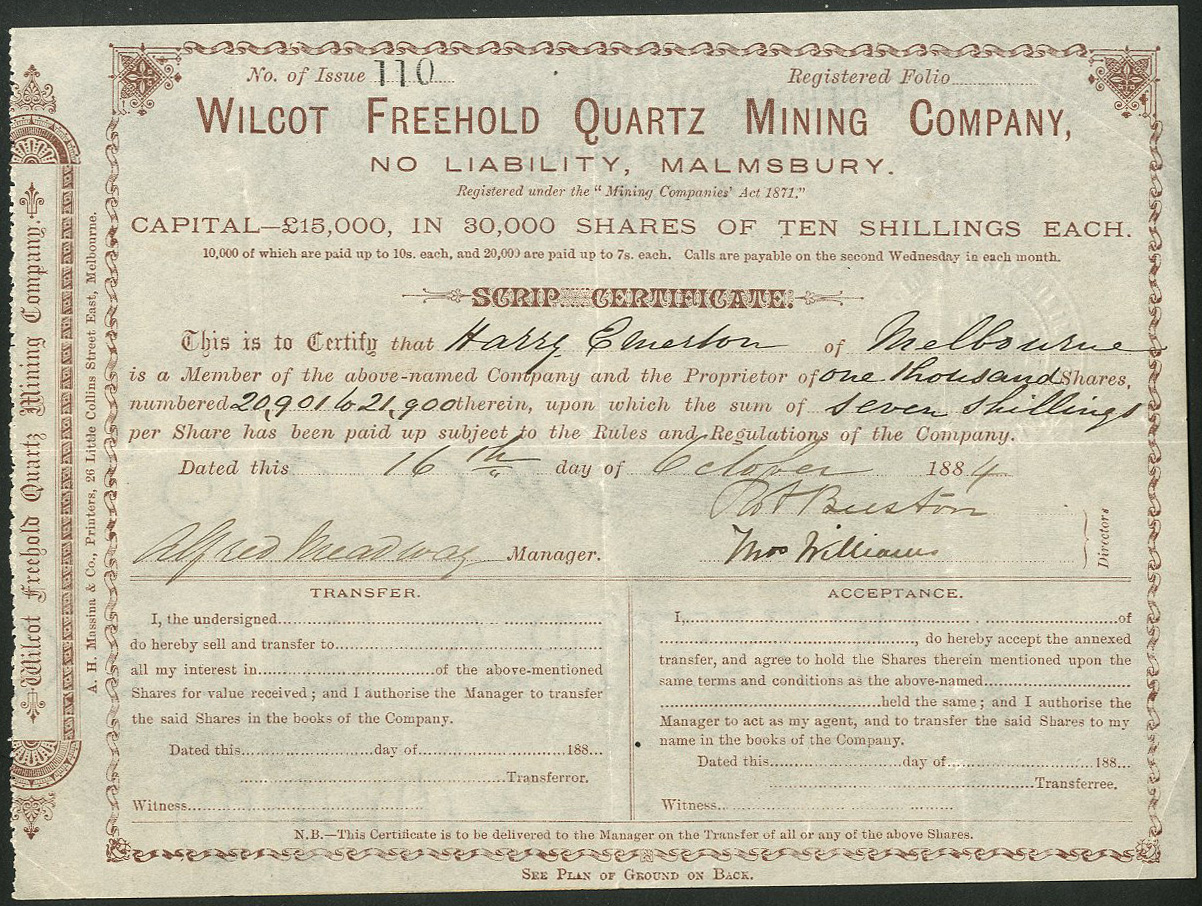 No. of Issue 110 Registered Folio
WILCOT FREEHOLD QUARTZ MINING COMPANY,
NO LIABILITY, MALMSBURY.
Registered under the "Mining Companies' Act 1871."
CAPITAL—£15,000, IN 30,000 SHARES OF TEN SHILLINGS EACH.
10,000 of which are paid up to 10s. each, and 20,000 are paid up to 7s. each. Calls are payable on the second Wednesday in each month.
SCRIP CERTIFICATE.
This is to Certify that Harry Emerton of Melbourne
is a Member of the above-named Company and the Proprietor of one thousand Shares,
numbered 20,901 to 21,900 therein, upon which the sum of seven shillings
per Share has been paid up subject to the Rules and Regulations of the Company.
Dated this 16th day of October 1884
Buston
Alfred Meadway Manager. Thos Williams Directors
TRANSFER.
I, the undersigned
do hereby sell and transfer to
all my interest in of the above-mentioned
Shares for value received; and I authorise the Manager to transfer
the said Shares in the books of the Company.
Dated this day of 188
Transferror.
Witness
ACCEPTANCE.
I, of
, do hereby accept the annexed
transfer, and agree to hold the Shares therein mentioned upon the
same terms and conditions as the above-named
held the same; and I authorise the
Manager to act as my agent, and to transfer the said Shares to my
name in the books of the Company.
Dated this day of 188
Transferree.
Witness
N.B.—This Certificate is to be delivered to the Manager on the Transfer of all or any of the above Shares.
SEE PLAN OF GROUND ON BACK.
Wilcot Freehold Quartz Mining Company.
A. H. Massina & Co., Printers, 26 Little Collins Street East, Melbourne.